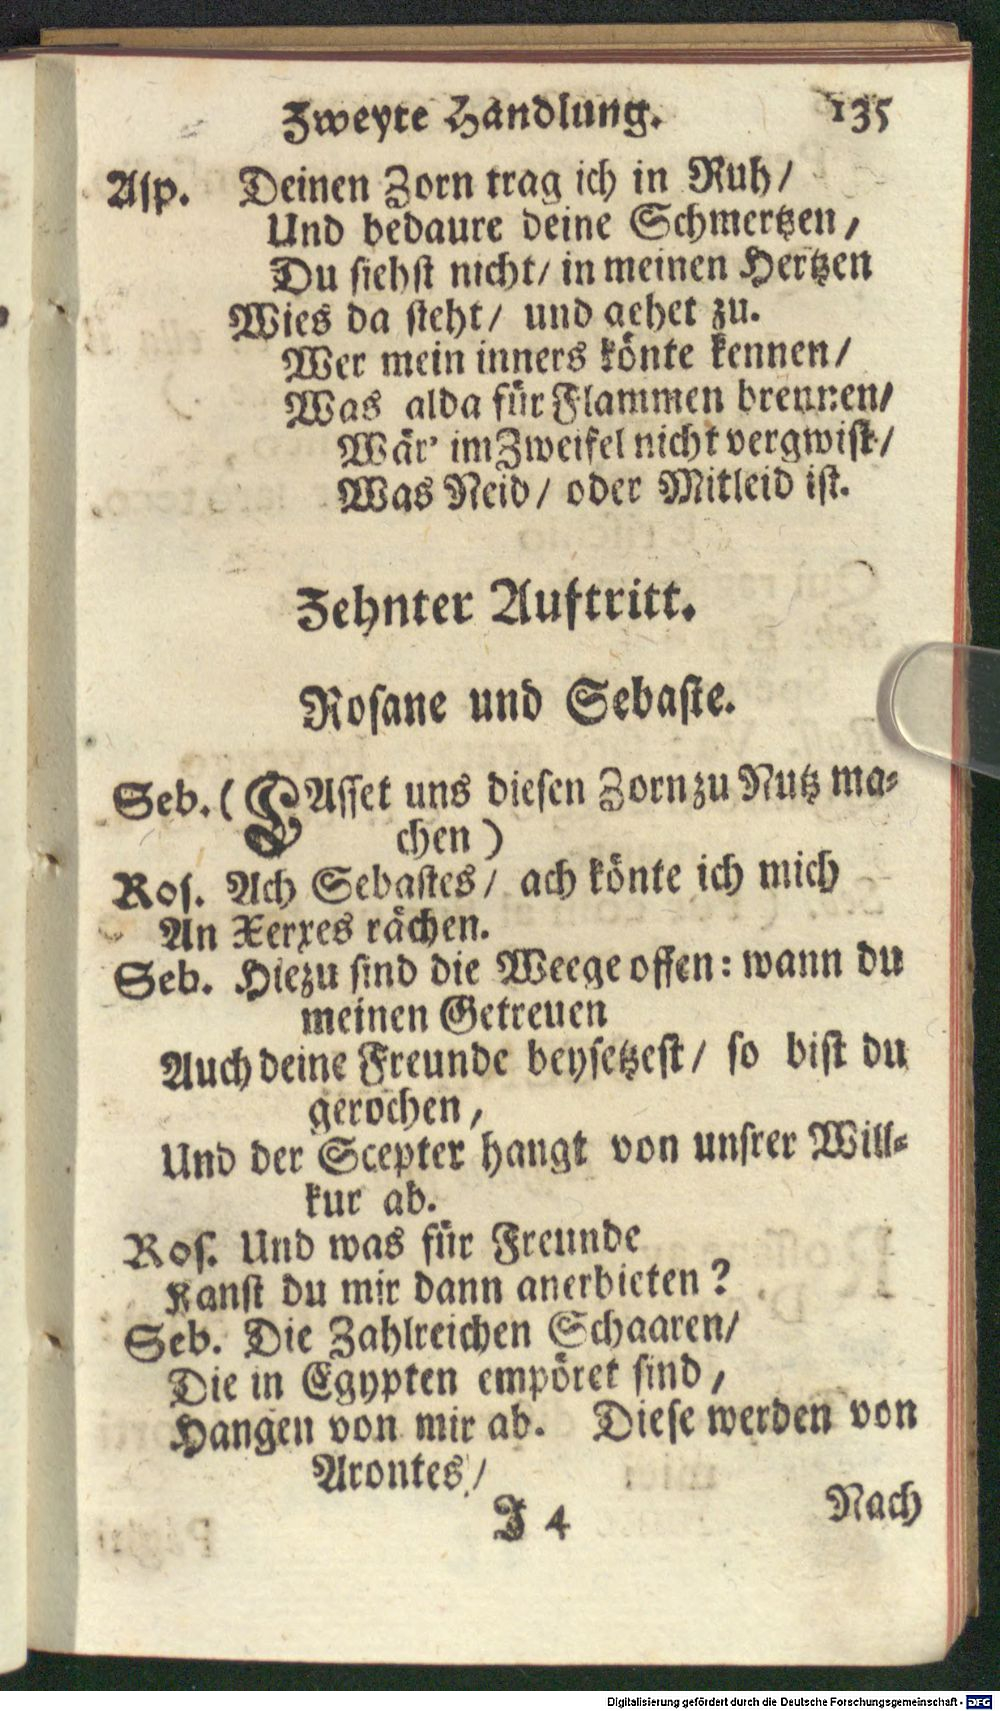 Zweyte Handlung. 135
Asp. Deinen Zorn trag ich in Ruh/
Und bedaure deine Schmertzen,
Du siehst nicht/ in meinen Hertzen
Wies da steht/ und gehet zu.
Wer mein inners könte kennen/
Was alda für Flammen brennen/
Wär' im Zweifel nicht vergwist/
Was Neid/ oder Mitleid ist.
Zehnter Auftritt.
Rosane und Sebaste.
Seb. (LAsset uns diesen Zorn zu Nutz ma-
chen)
Ros. Ach Sebastes/ ach könte ich mich
An Xerxes rächen.
Seb. Hiezu sind die Weege offen: wann du
meinen Getreuen
Auch deine Freunde beysetzest/ so bist du
gerochen,
Und der Scepter hangt von unsrer Will-
kur ab.
Ros. Und was für Freunde
Kanst du mir dann anerbieten?
Seb. Die Zahlreichen Schaaren/
Die in Egypten empöret sind,
Hangen von mir ab. Diese werden von
Arontes/
J 4 Nach
Digitalisierung gefördert durch die Deutsche Forschungsgemeinschaft - DFG